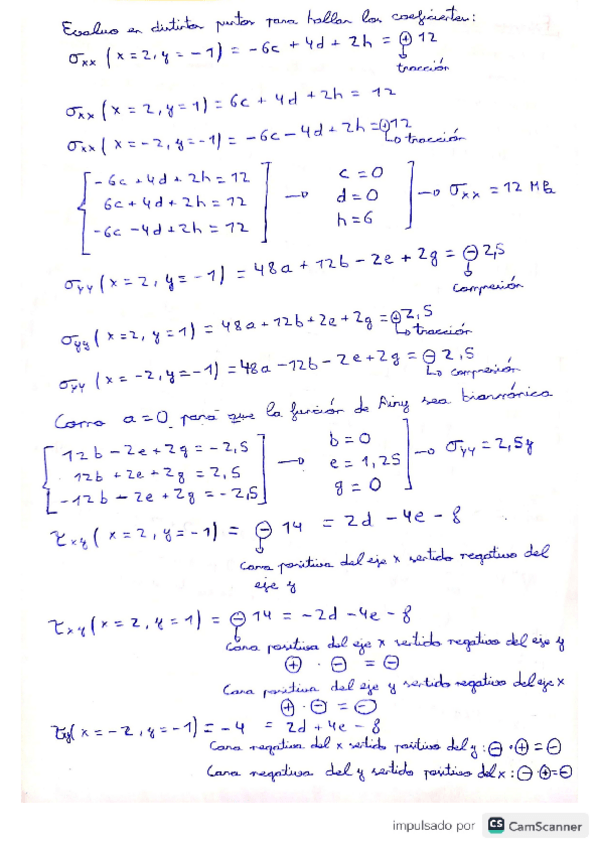 Evaluo en distintos puntos para hallar los coeficientes:
σxx (x=2, y=-1) = -6c + 4d + 2h = ⊕ 12
tracción
σxx (x=2, y=1) = 6c + 4d + 2h = 12
σxx (x=-2, y=-1) = -6c - 4d + 2h = ⊕12
↳ tracción
-6c + 4d + 2h = 12
6c + 4d + 2h = 12
-6c - 4d + 2h = 12
→
c = 0
d = 0
h = 6
→ σxx = 12 MPa
σyy (x=2, y=-1) = 48a + 12b - 2e + 2g = ⊖ 2,5
compresión
σyy (x=2, y=1) = 48a + 12b + 2e + 2g = ⊕2,5
↳ tracción
σyy (x=-2, y=-1) = 48a - 12b - 2e + 2g = ⊖ 2,5
↳ compresión
Como a=0 para que la función de Airy sea biarmónica
12b - 2e + 2g = -2,5
12b + 2e + 2g = 2,5
-12b - 2e + 2g = -2,5
→
b = 0
e = 1,25
g = 0
→ σyy = 2,5y
τxy (x=2, y=-1) = ⊖ 14 = 2d - 4e - 8
Cara positiva del eje x sentido negativo del
eje y
τxy (x=2, y=1) = ⊖ 14 = -2d - 4e - 8
Cara positiva del eje x sentido negativo del eje y
⊕ · ⊖ = ⊖
Cara positiva del eje y sentido negativo del eje x
⊕ · ⊖ = ⊖
(x=-2, y=-1) = -4 = 2d + 4e - 8
Cara negativa del x sentido positivo del y: ⊖ · ⊕ = ⊖
Cara negativa del y sentido positivo del x: ⊖ · ⊕ = ⊖
impulsado por CS CamScanner